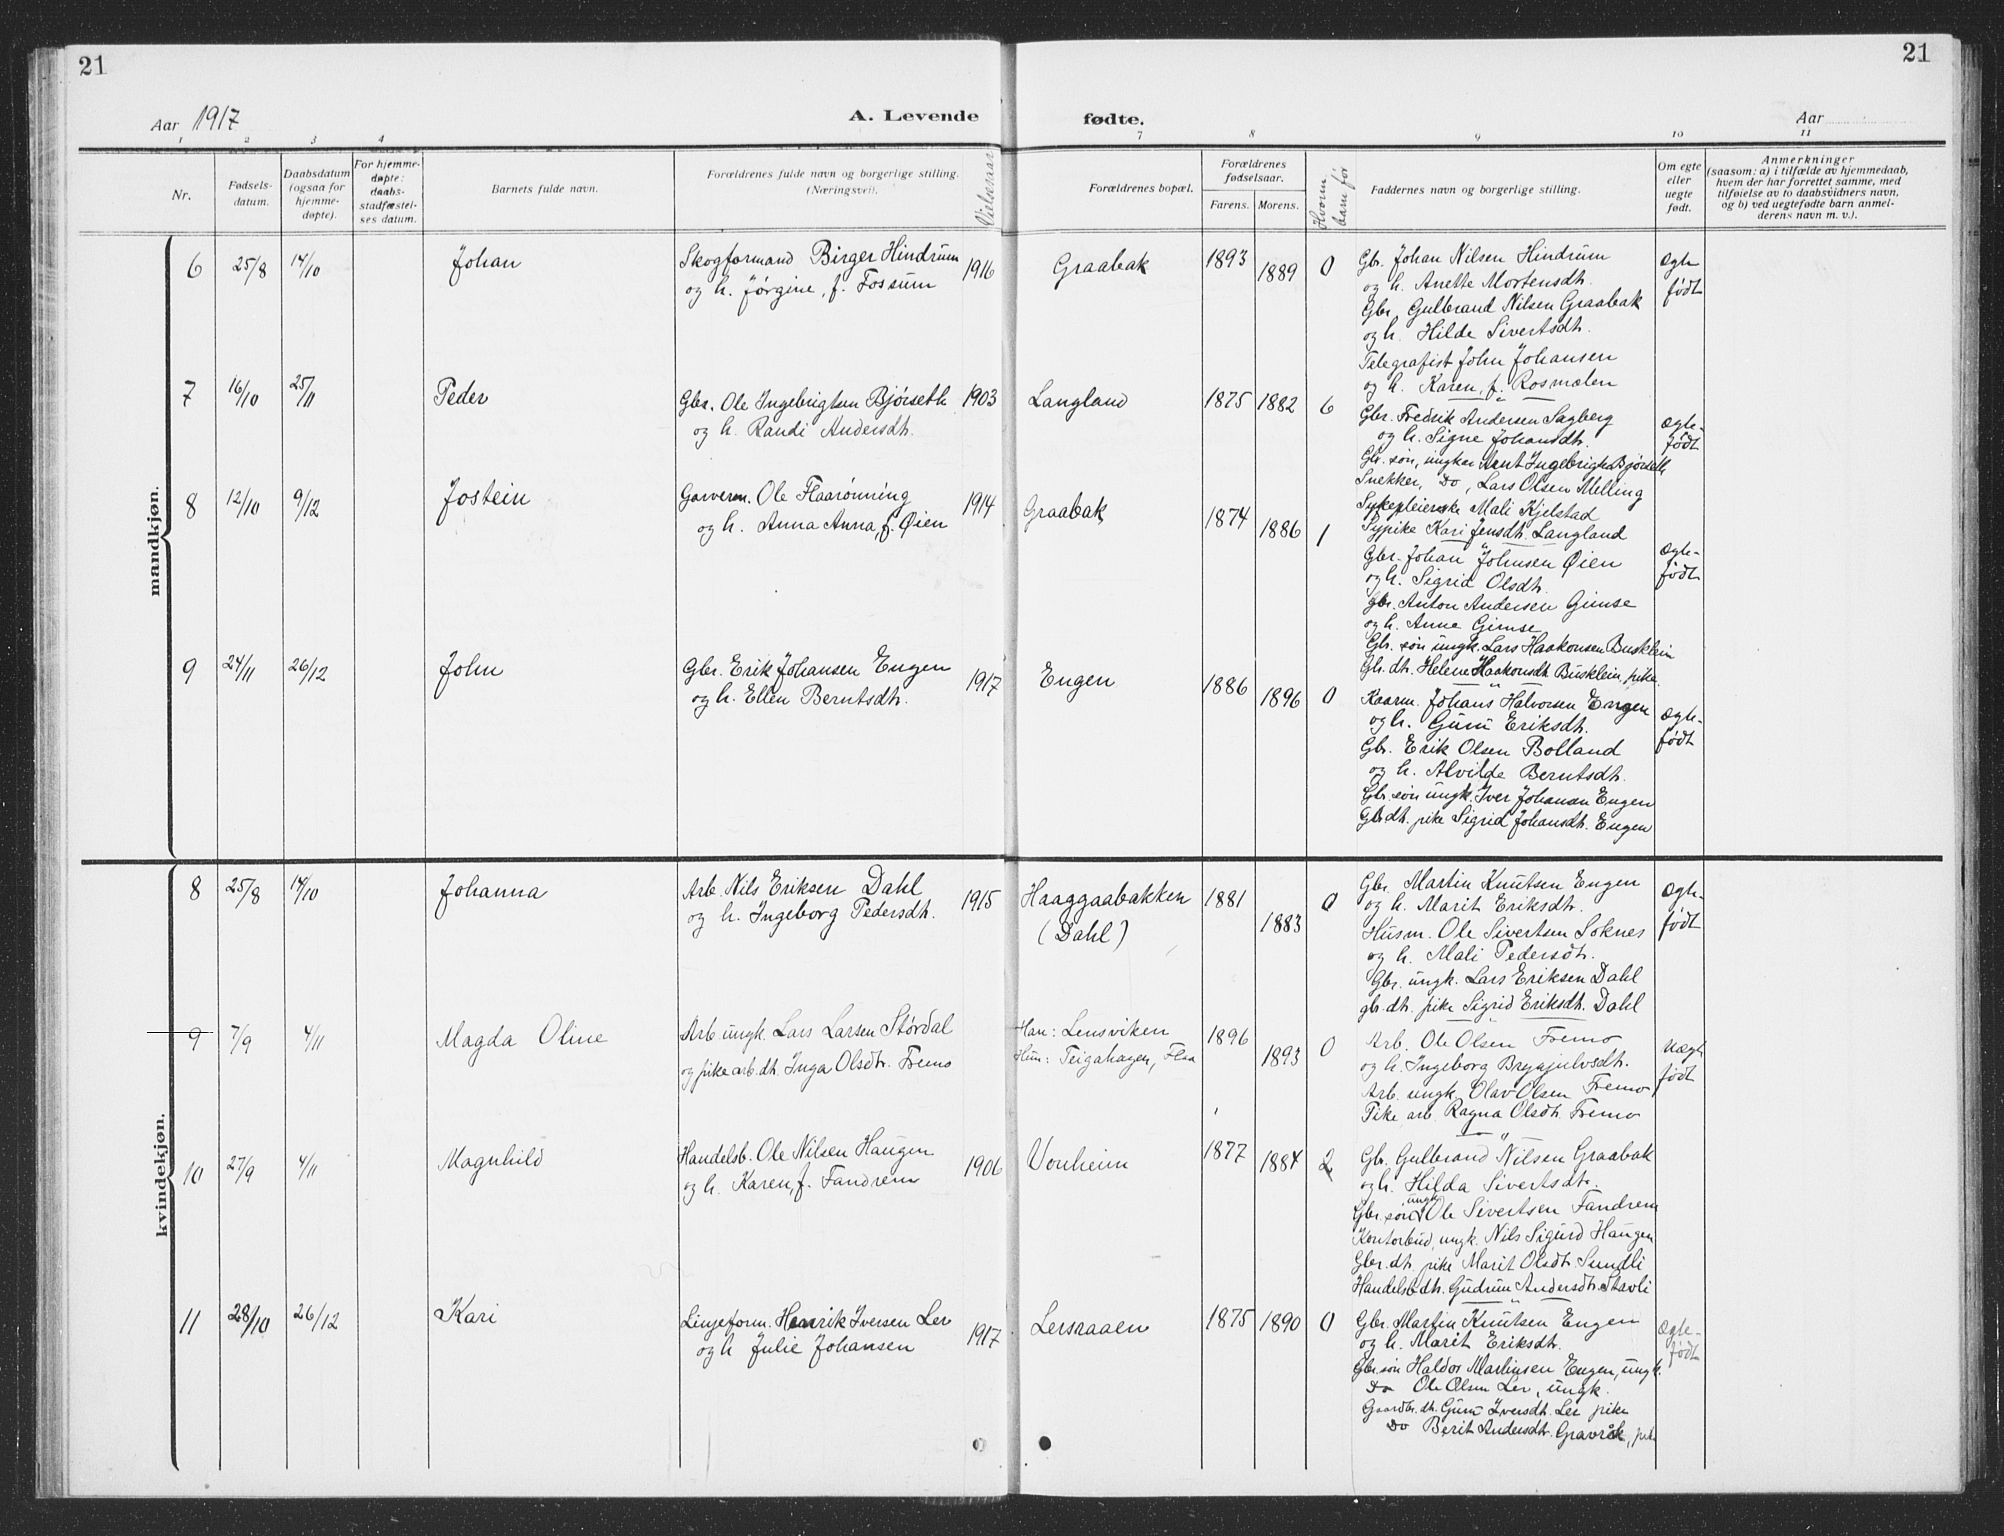 21
21
Aar 1917
A. Levende
fødte.
Aar
1 2 3 4 7 8 9 10 11
Nr.
Fødsels-
datum.
Daabsdatum
(ogsaa for
hjemme-
døpte).
For hjemme-
døpte:
daabs-
stadfæstel-
ses datum.
Barnets fulde navn.
Forældrenes fulde navn og borgerlige stilling.
(Næringsvei).
Vielsesaar
Forældrenes bopæl.
Forældrenes
fødselsaar.
Farens. Morens.
Hvormange
barn før
Faddernes navn og borgerlige stilling.
Om egte
eller
uegte
født.
Anmerkninger
(saasom: a) i tilfælde av hjemmedaab,
hvem der har forrettet samme, med
tilføielse av to daabsvidners navn,
og b) ved uegtefødte barn anmel-
derens navn m. v.).
mandkjøn.
6 25/8 14/10 Johan
Skogformand Birger Hindrum
og h. Jørgine, f. Fossum
1916 Graabak 1893 1889 0
Gbr. Johan Nilsen Hindrum
og h. Anette Mortensdtr.
Gbr. Gulbrand Nilsen Graabak
og h. Hilde Sivertsdtr.
Telegrafist John Johansen
og h. Karen, f. Rosmælen
Ægte
født
7 16/10 25/11 Peder
Gbr. Ole Ingebrigtsen Bjørseth
og h. Randi Andersdtr.
1903 Langland 1875 1882 6
Gbr. Fredrik Andersen Sagberg
og h. Signe Johansdtr.
Gbr. søn, ungkar Arnt Ingebrigts. Bjørseth
Snekker, Do, Lars Olsen Melling
Sykepleierske Mali Kjelstad
Sypike Kari Jensdtr. Langland
Ægte-
født
8 12/10 9/12 Jostein
Garverm. Ole Flaarønning
og h. Anna Anna, f. Øien
1914 Graabak 1874 1886 1
Gbr. Johan Johnsen Øien
og h. Sigrid Olsdtr.
gbr. Anton Andersen Gimse
og h. Anne Gimse
Gbr. søn ungk. Lars Haakonsen Busklein
Gbr. dtr. Helene Haakonsdtr. Busklein, pike.
Ægte-
født
9 24/11 26/12 John
Gbr. Erik Johansen Engen
og h. Ellen Berntsdtr.
1917 Engen 1886 1896 0
Kaarm. Johans Halvorsen Engen
og h. Guru Eriksdtr.
Gbr. Erik Olsen Bolland
og h. Alvilde Berntsdtr.
Gbr. søn ungk. Iver Johansen Engen
Gbr dtr. pike Sigrid Johansdtr. Engen
Ægte-
født
kvindekjøn.
8 25/8 14/10 Johanna
Arb. Nils Eriksen Dahl
og h. Ingeborg Pedersdtr.
1915 Haaggaabakken
(Dahl)
1881 1883 0
Gbr. Martin Knutsen Engen
og h. Marit Eriksdtr.
Husm. Ole Sivertsen Soknes
og h. Mali Pedersdtr.
Gbr. ungk. Lars Eriksen Dahl
gbr. dtr. pike Sigrid Eriksdtr. Dahl
Ægte-
født
9 7/9 4/11 Magda Oline
Arb. ungk. Lars Larsen Størdal
og pike arb. dtr. Inga Olsdtr. Fremo
Han: Lensviken
Hun: Teigahagen, Flaa
1896 1893 0
Arb. Ole Olsen Fremo
og h. Ingeborg Brynjulvsdtr.
Arb. ungk. Olav Olsen Fremo
Pike, arb. Ragna Olsdtr. Fremo
Uægte
født
10 27/9 4/11 Magnhild
Handelsb. Ole Nilsen Haugen
og h. Karen, f. Fandrem
1906 Vonheim 1877 1884 2
Gbr. Gulbrand Nilsen Graabak
og h. Hilda Sivertsdtr.
Gbr. søn ungk. Ole Sivertsen Fandrem
Kontorbud, ungk. Nils Sigurd Haugen
Gbr. dtr. pike Marit Olsdtr. Sundli
Handelsb. dtr. Gudrun Andersdtr. Stavli
11 28/10 26/12 Kari
Linjeform. Henrik Iversen Ler
og h Julie Johansen
1917 Lersraaen 1875 1890 0
Gbr. Martin Knutsen Engen
og h. Marit Eriksdtr.
Gbr. søn Haldor Martinsen Engen, ungk.
Do Ole Olsen Ler, ungk.
Gaardbr. dtr. Guru Iversdtr. Ler pike
Do Berit Andersdtr. Gravråk, pike
Ægte-
født